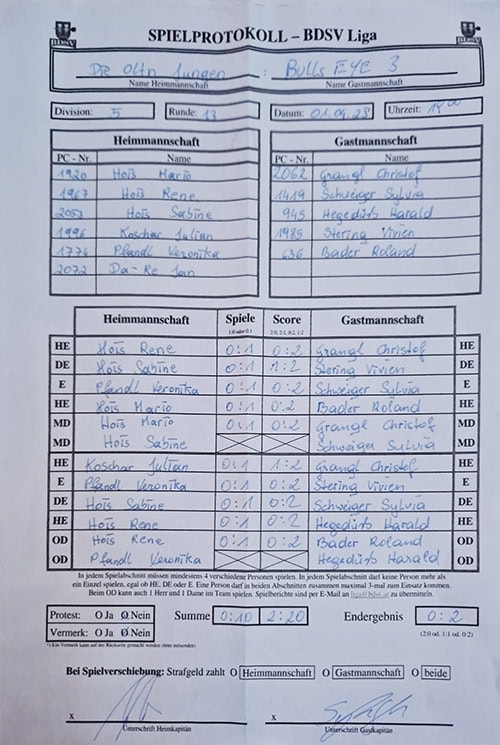 BDSV SPIELPROTOKOLL – BDSV Liga BDSV
Die Oltn Jungen : Bulls EYE 3
Name Heimmannschaft Name Gastmannschaft
Division: 5 Runde: 13 Datum: 01.04.23 Uhrzeit: 14 00
Heimmannschaft Gastmannschaft
PC - Nr. Name PC - Nr. Name
1920 Hois Mario 2062 Grangl Christof
1967 Hois Rene 1419 Schweiger Sylvia
2053 Hois Sabine 945 Hegedüs Harald
1996 Koschar Julian 1985 Stering Vivien
1774 Pfandl Veronika 636 Bader Roland
2072 Da-Re Jan
Heimmannschaft Spiele Score Gastmannschaft
1:0 oder 0:1 2:0, 2:1, 0:2, 1:2
HE Hois Rene 0:1 0:2 Grangl Christof HE
DE Hois Sabine 0:1 1:2 Stering Vivien DE
E Pfandl Veronika 0:1 0:2 Schweiger Sylvia E
HE Hois Mario 0:1 0:2 Bader Roland HE
MD Hois Mario 0:1 0:2 Grangl Christof MD
MD Hois Sabine Schweiger Sylvia MD
HE Koschar Julian 0:1 1:2 Grangl Christof HE
E Pfandl Veronika 0:1 0:2 Stering Vivien E
DE Hois Sabine 0:1 0:2 Schweiger Sylvia DE
HE Hois Rene 0:1 0:2 Hegedüs Harald HE
OD Hois Rene 0:1 0:2 Bader Roland OD
OD Pfandl Veronika Hegedüs Harald OD
In jedem Spielabschnitt müssen mindestens 4 verschiedene Personen spielen. In jedem Spielabschnitt darf keine Person mehr als
ein Einzel spielen, egal ob HE, DE oder E. Eine Person darf in beiden Abschnitten zusammen maximal 3-mal zum Einsatz kommen.
Beim OD kann auch 1 Herr und 1 Dame im Team spielen. Spielberichte sind per E-Mail an liga@bdsv.at zu übermitteln.
Protest: O Ja O Nein Summe 0:10 2:20 Endergebnis 0:2
Vermerk: O Ja O Nein (2:0 od. 1:1 od. 0:2)
*) Ein Vermerk kann auf der Rückseite gemacht werden (bitte mitsenden)
Bei Spielverschiebung: Strafgeld zahlt O Heimmannschaft O Gastmannschaft O beide
x x
Unterschrift Heimkapitän Unterschrift Gastkapitän